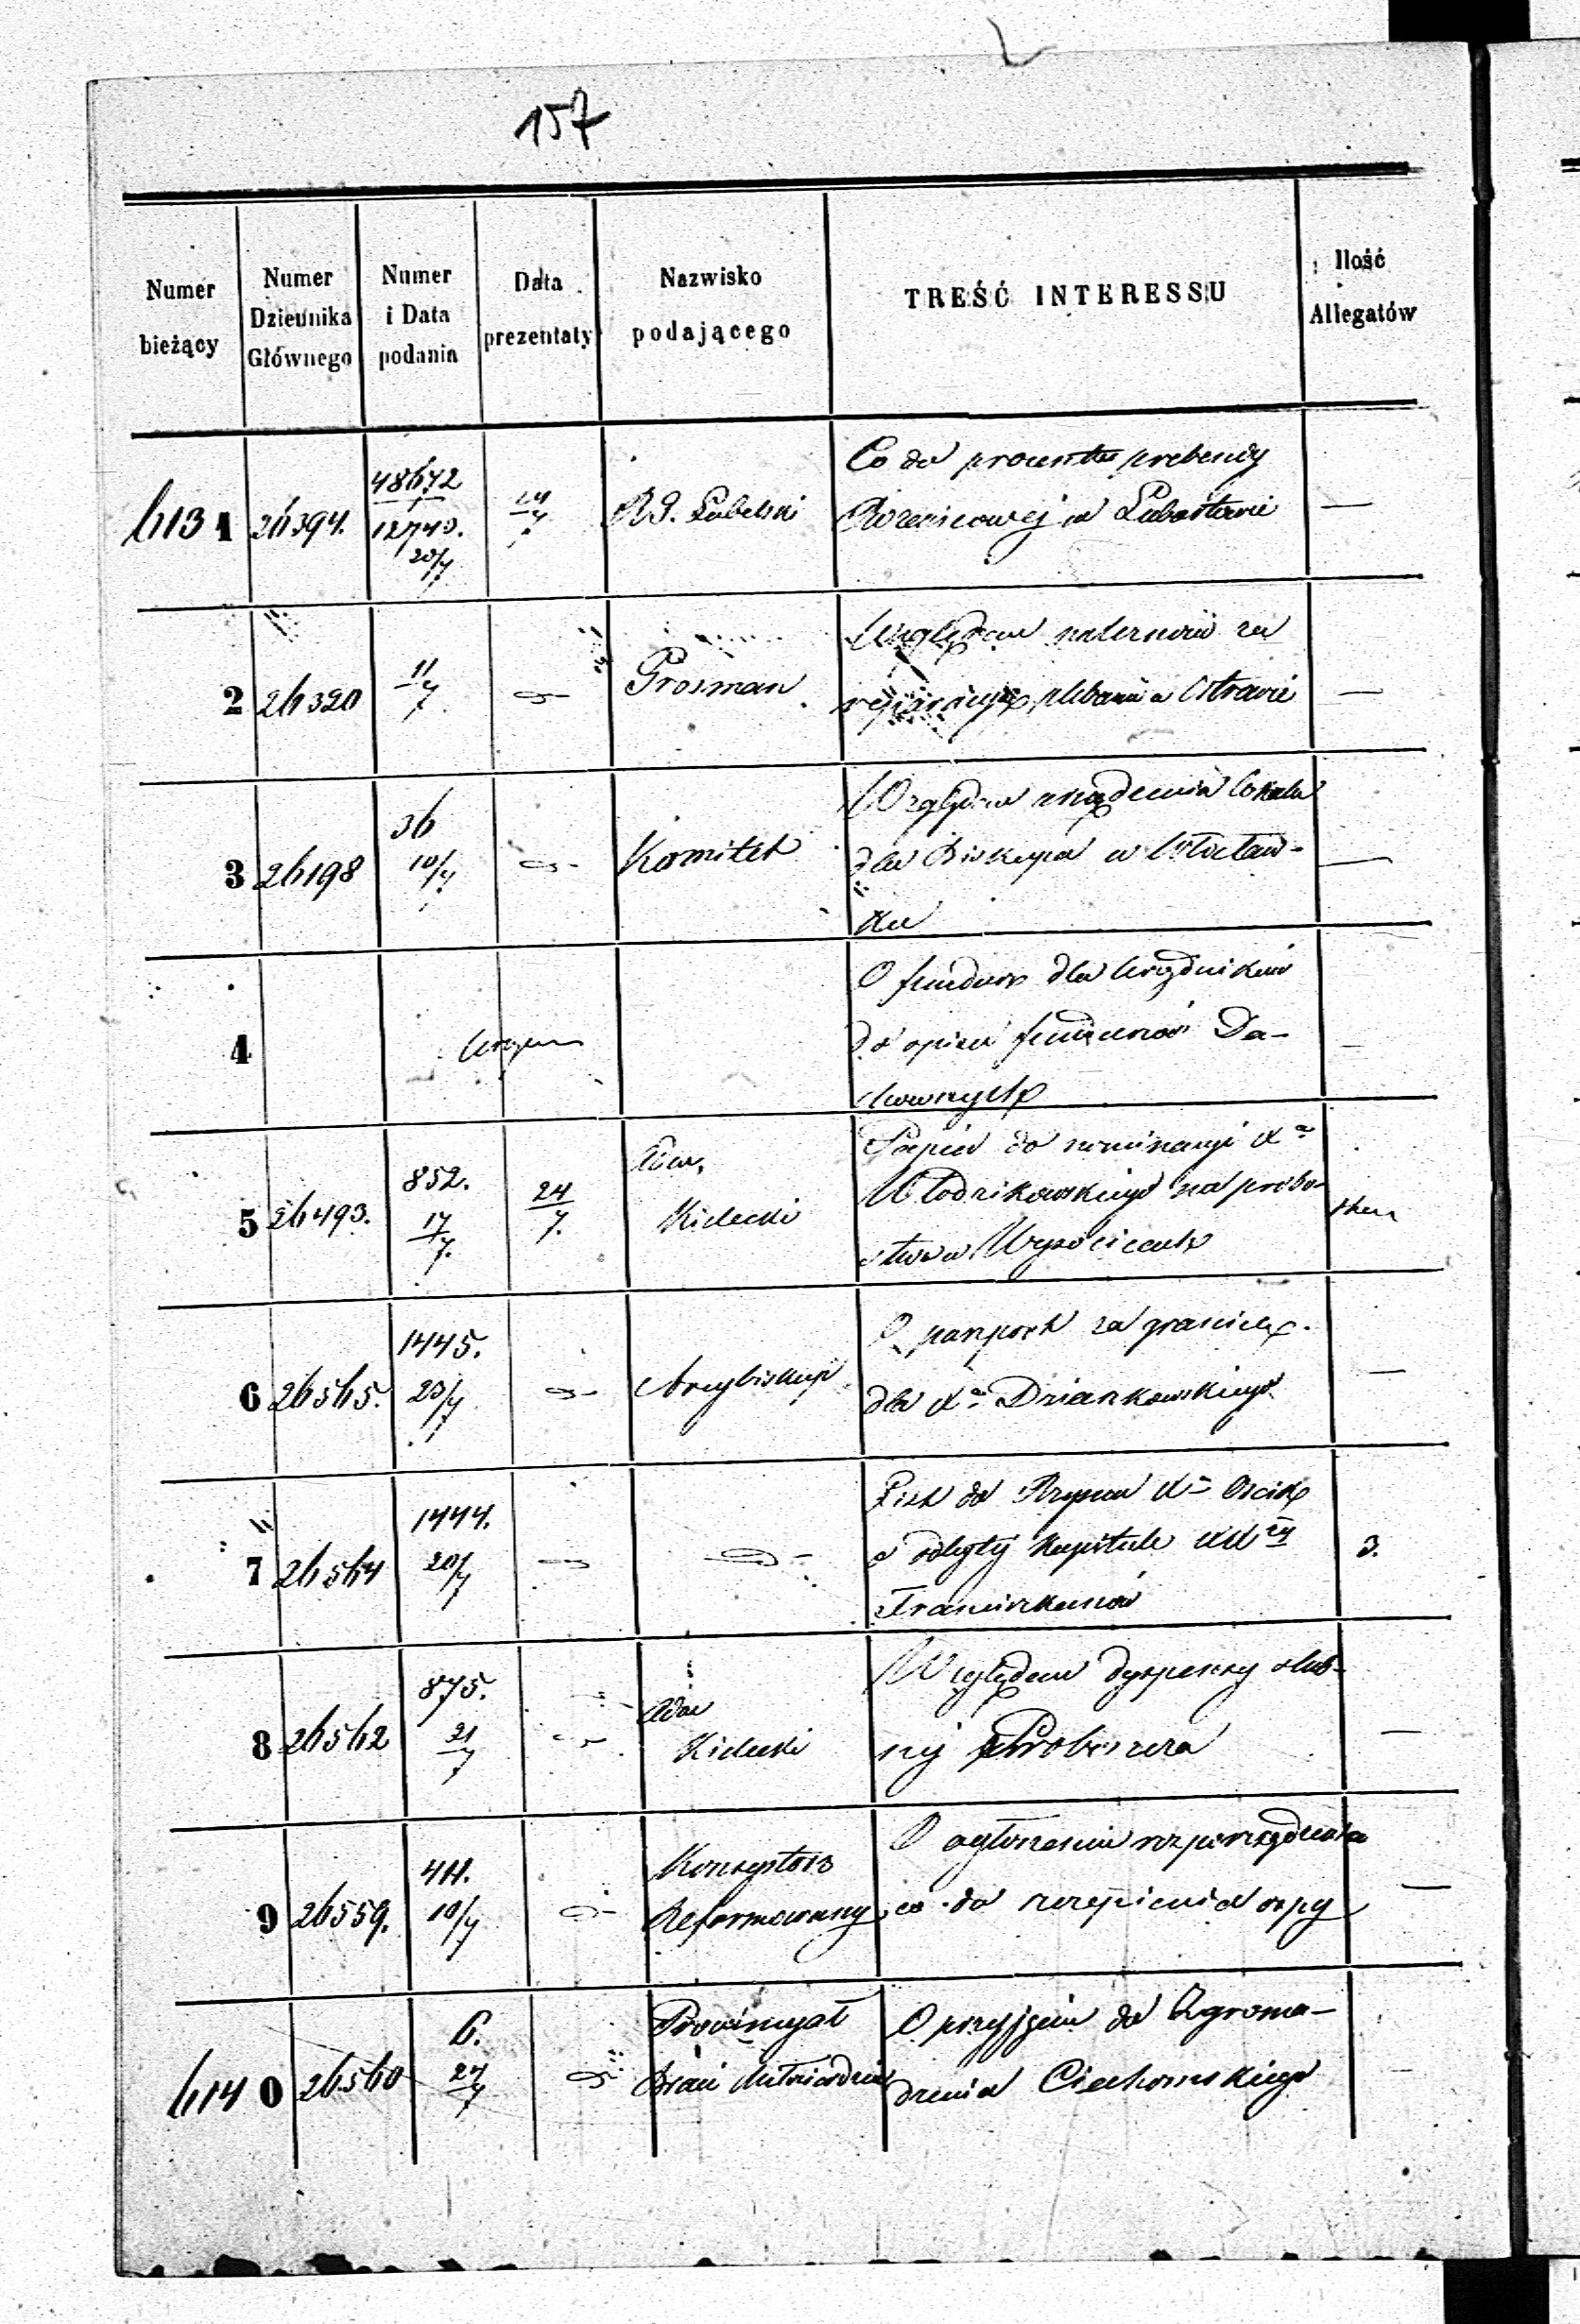 157
Numer bieżący
Numer Dziennika Głównego
Numer i Data podania
Data prezentaty
Nazwisko podającego
TREŚĆ INTERESSU
Ilość Allegatów
6131 26394. 48672 12743. 20/7 24/7 R.G. Lubelski Co do procentu prebendy
Różańcowej w Lubartowie —
2 26320 11/7 Grosman Względem
plebanii w —
3 26198 36 10/7 Komitet Względem urządzenia lokalu
dla Biskupa w Włocław-
ku —
4 O fundusz dla Urzędników
do spisu funduszów Du-
chownych —
5 26493. 852. 17/7. 24/7. Adm. Kielecki do nominacyi Xa
Włodzikowskiego na probo-
stwo w Wysocicach
6 26565. 1445. 23/7 Arcybiskup O paszport za granicę
dla Xa Dziankowskiego —
7 26564 1444. 20/7 do Rzymu Xa
o odbytej Kapitule XX
Franciszkanów 3.
8 26562 875. 21/7 Adm Kielecki Względem dyspensy ślub-
nej —
9 26559. 411. 10/7 Konsystorz Reformowany O ogłoszeniu rozporządzenia
co do szczepienia ospy —
6140 26560 6. 24/7 Prowincyał Braci Miłosierdzia O przyjęciu do Zgroma-
dzenia Ciechomskiego —